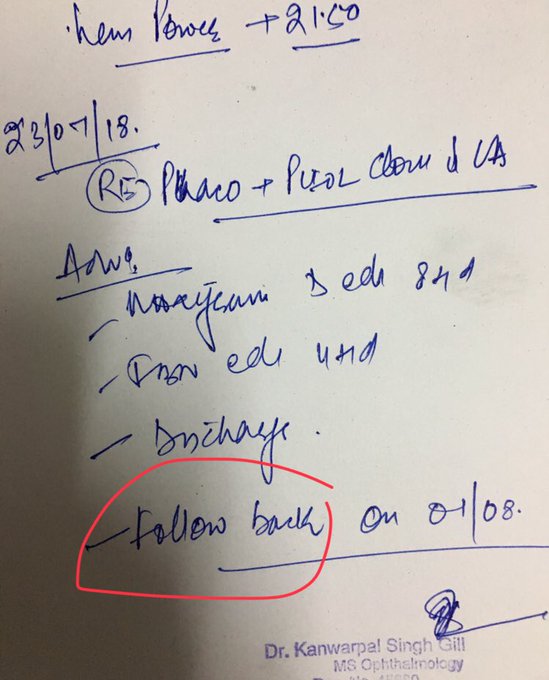 Lens Power +21.50
23/07/18.
RE Phaco + PCIOL done LA
Adv.
D e/d 8td
e/d 4td
- Discharge.
- Follow back on 01/08.
Dr. Kanwarpal Singh Gill
MS Ophthalmology